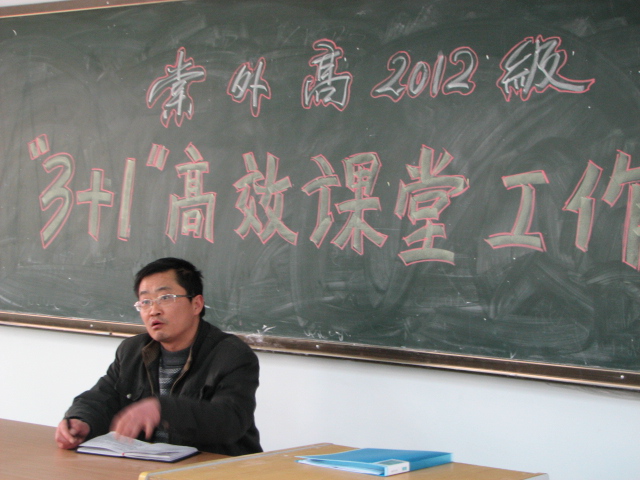 棠外高2012级
"3+1"高效课堂工作